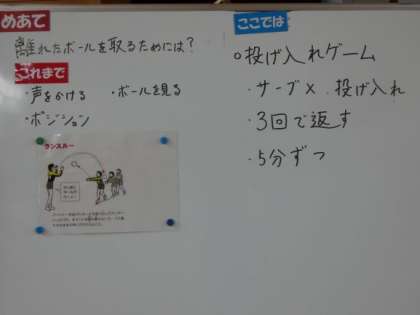 めあて
離れたボールを取るためには?
これまで
・声をかける ・ボールを見る
・ポジション
ランスルー
ここでは
○投げ入れゲーム
・サーブ× 投げ入れ
・3回で返す
・5分ずつ